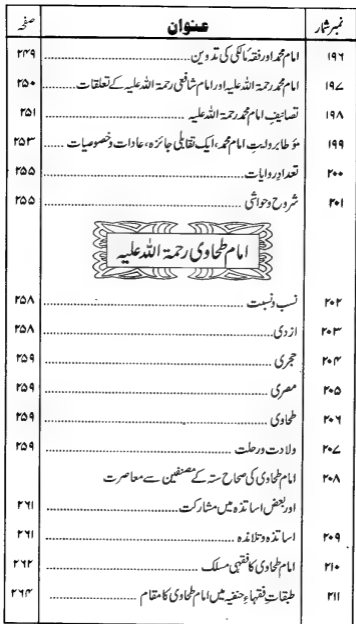 نمبر شمار عنوان صفحہ
۱۹۶ امام محمد اور فقہ مالکی کی تدوین ۲۴۹
۱۹۷ امام محمد رحمۃ اللہ علیہ اور امام شافعی رحمۃ اللہ علیہ کے تعلقات ۲۵۰
۱۹۸ تصانیفِ امام محمد رحمۃ اللہ علیہ ۲۵۱
۱۹۹ مؤطا بروایتِ امام محمد، ایک تقابلی جائزہ، عادات و خصوصیات ۲۵۳
۲۰۰ تعدادِ روایات ۲۵۵
۲۰۱ شروح و حواشی ۲۵۵
امام طحاوی رحمۃ اللہ علیہ
۲۰۲ نسب و نسبت ۲۵۸
۲۰۳ ازدی ۲۵۸
۲۰۴ حجری ۲۵۹
۲۰۵ مصری ۲۵۹
۲۰۶ طحاوی ۲۵۹
۲۰۷ ولادت و رحلت ۲۵۹
۲۰۸ امام طحاوی کی صحاح ستہ کے مصنفین سے معاصرت
اور بعض اساتذہ میں مشارکت ۲۶۱
۲۰۹ اساتذہ و تلامذہ ۲۶۱
۲۱۰ امام طحاوی کا فقہی مسلک ۲۶۲
۲۱۱ طبقاتِ فقہاءِ حنفیہ میں امام طحاوی کا مقام ۲۶۴